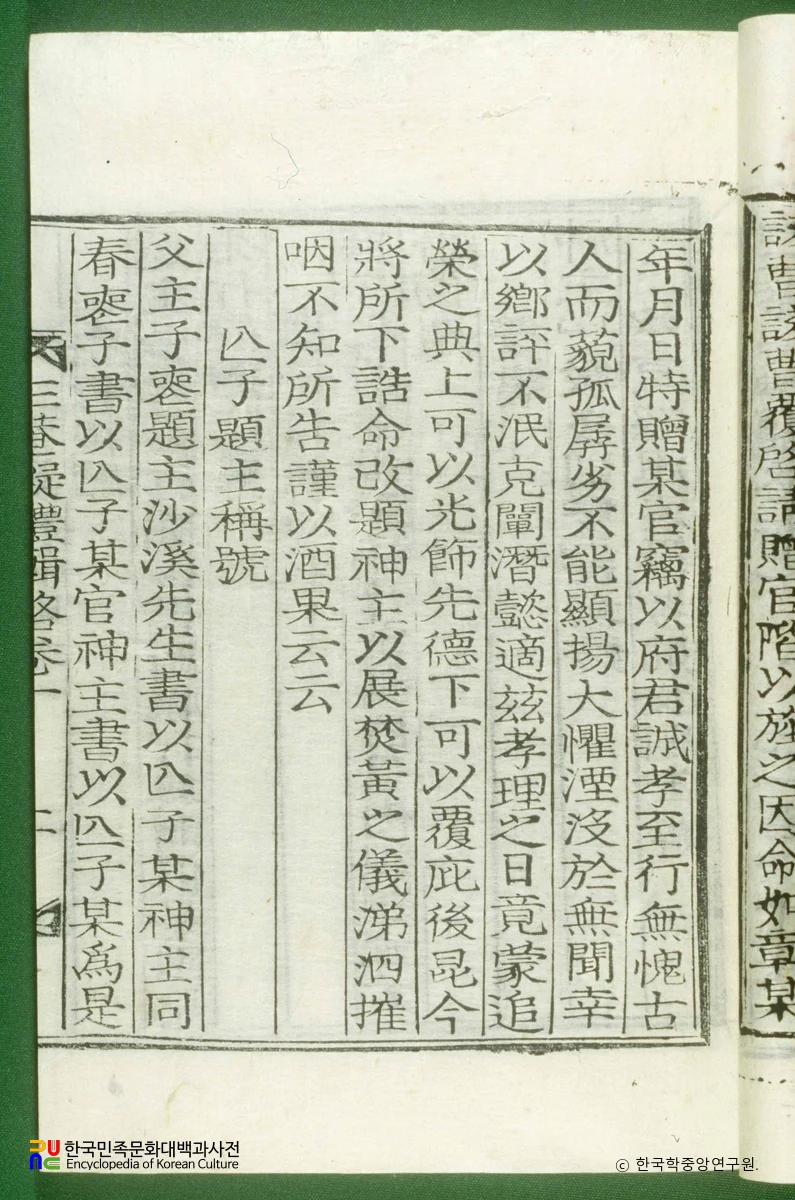 該曹該曹覆啓請贈官階以旌之因命如章某
年月日特贈某官竊以府君誠孝至行無愧古
人而藐孤孱劣不能顯揚大懼湮沒於無聞幸
以鄕評不泯克闡潛懿適玆孝理之日竟蒙追
榮之典上可以光飾先德下可以覆庇後昆今
將所下誥命改題神主以展焚黃之儀涕泗摧
咽不知所告謹以酒果云云
亾子題主稱號
父主子喪題主沙溪先生書以亾子某神主同
春喪子書以亾子某官神主書以亾子某爲是
三菴疑禮輯略卷一 二
한국민족문화대백과사전
Encyclopedia of Korean Culture
© 한국학중앙연구원.